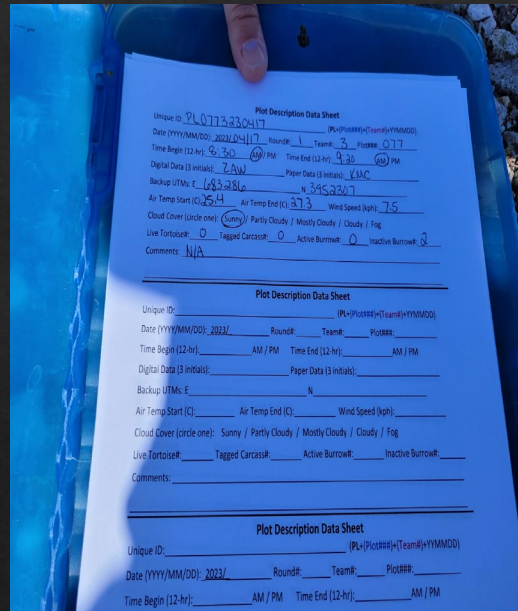 Plot Description Data Sheet
Unique ID: PL0773230417 (PL+(Plot###)+(Team#)+YYMMDD)
Date (YYYY/MM/DD): 2023/04/17 Round#: 1 Team#: 3 Plot###: 077
Time Begin (12-hr): 8:30 AM / PM Time End (12-hr): 9:20 AM / PM
Digital Data (3 initials): ZAW Paper Data (3 initials): KMC
Backup UTMs: E 683286 N 3952307
Air Temp Start (C): 25.4 Air Temp End (C): 27.3 Wind Speed (kph): 7.5
Cloud Cover (circle one): Sunny / Partly Cloudy / Mostly Cloudy / Cloudy / Fog
Live Tortoise#: 0 Tagged Carcass#: 0 Active Burrow#: 0 Inactive Burrow#: 2
Comments: N/A
Plot Description Data Sheet
Unique ID: (PL+(Plot###)+(Team#)+YYMMDD)
Date (YYYY/MM/DD): 2023/ Round#: Team#: Plot###:
Time Begin (12-hr): AM / PM Time End (12-hr): AM / PM
Digital Data (3 initials): Paper Data (3 initials):
Backup UTMs: E N
Air Temp Start (C): Air Temp End (C): Wind Speed (kph):
Cloud Cover (circle one): Sunny / Partly Cloudy / Mostly Cloudy / Cloudy / Fog
Live Tortoise#: Tagged Carcass#: Active Burrow#: Inactive Burrow#:
Comments:
Plot Description Data Sheet
Unique ID: (PL+(Plot###)+(Team#)+YYMMDD)
Date (YYYY/MM/DD): 2023/ Round#: Team#: Plot###:
Time Begin (12-hr): AM / PM Time End (12-hr): AM / PM